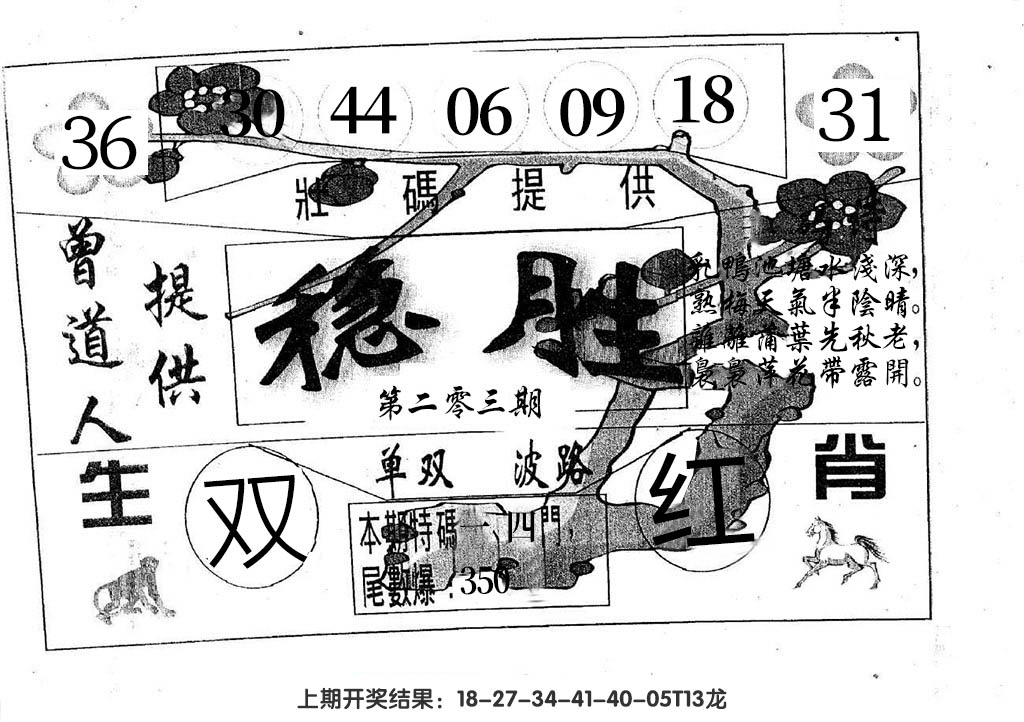 36 30 44 06 09 18 31
壯碼提供
曾道人
提供
稳胜
第二零三期
乳鴨池塘水淺深，
熟梅天氣半陰晴。
離離蒲葉先秋老，
裊裊萍花帶露開。
单双 波路
生 肖
双 红
本期特碼一、四門，
尾數爆：350
上期开奖结果：18-27-34-41-40-05T13龙